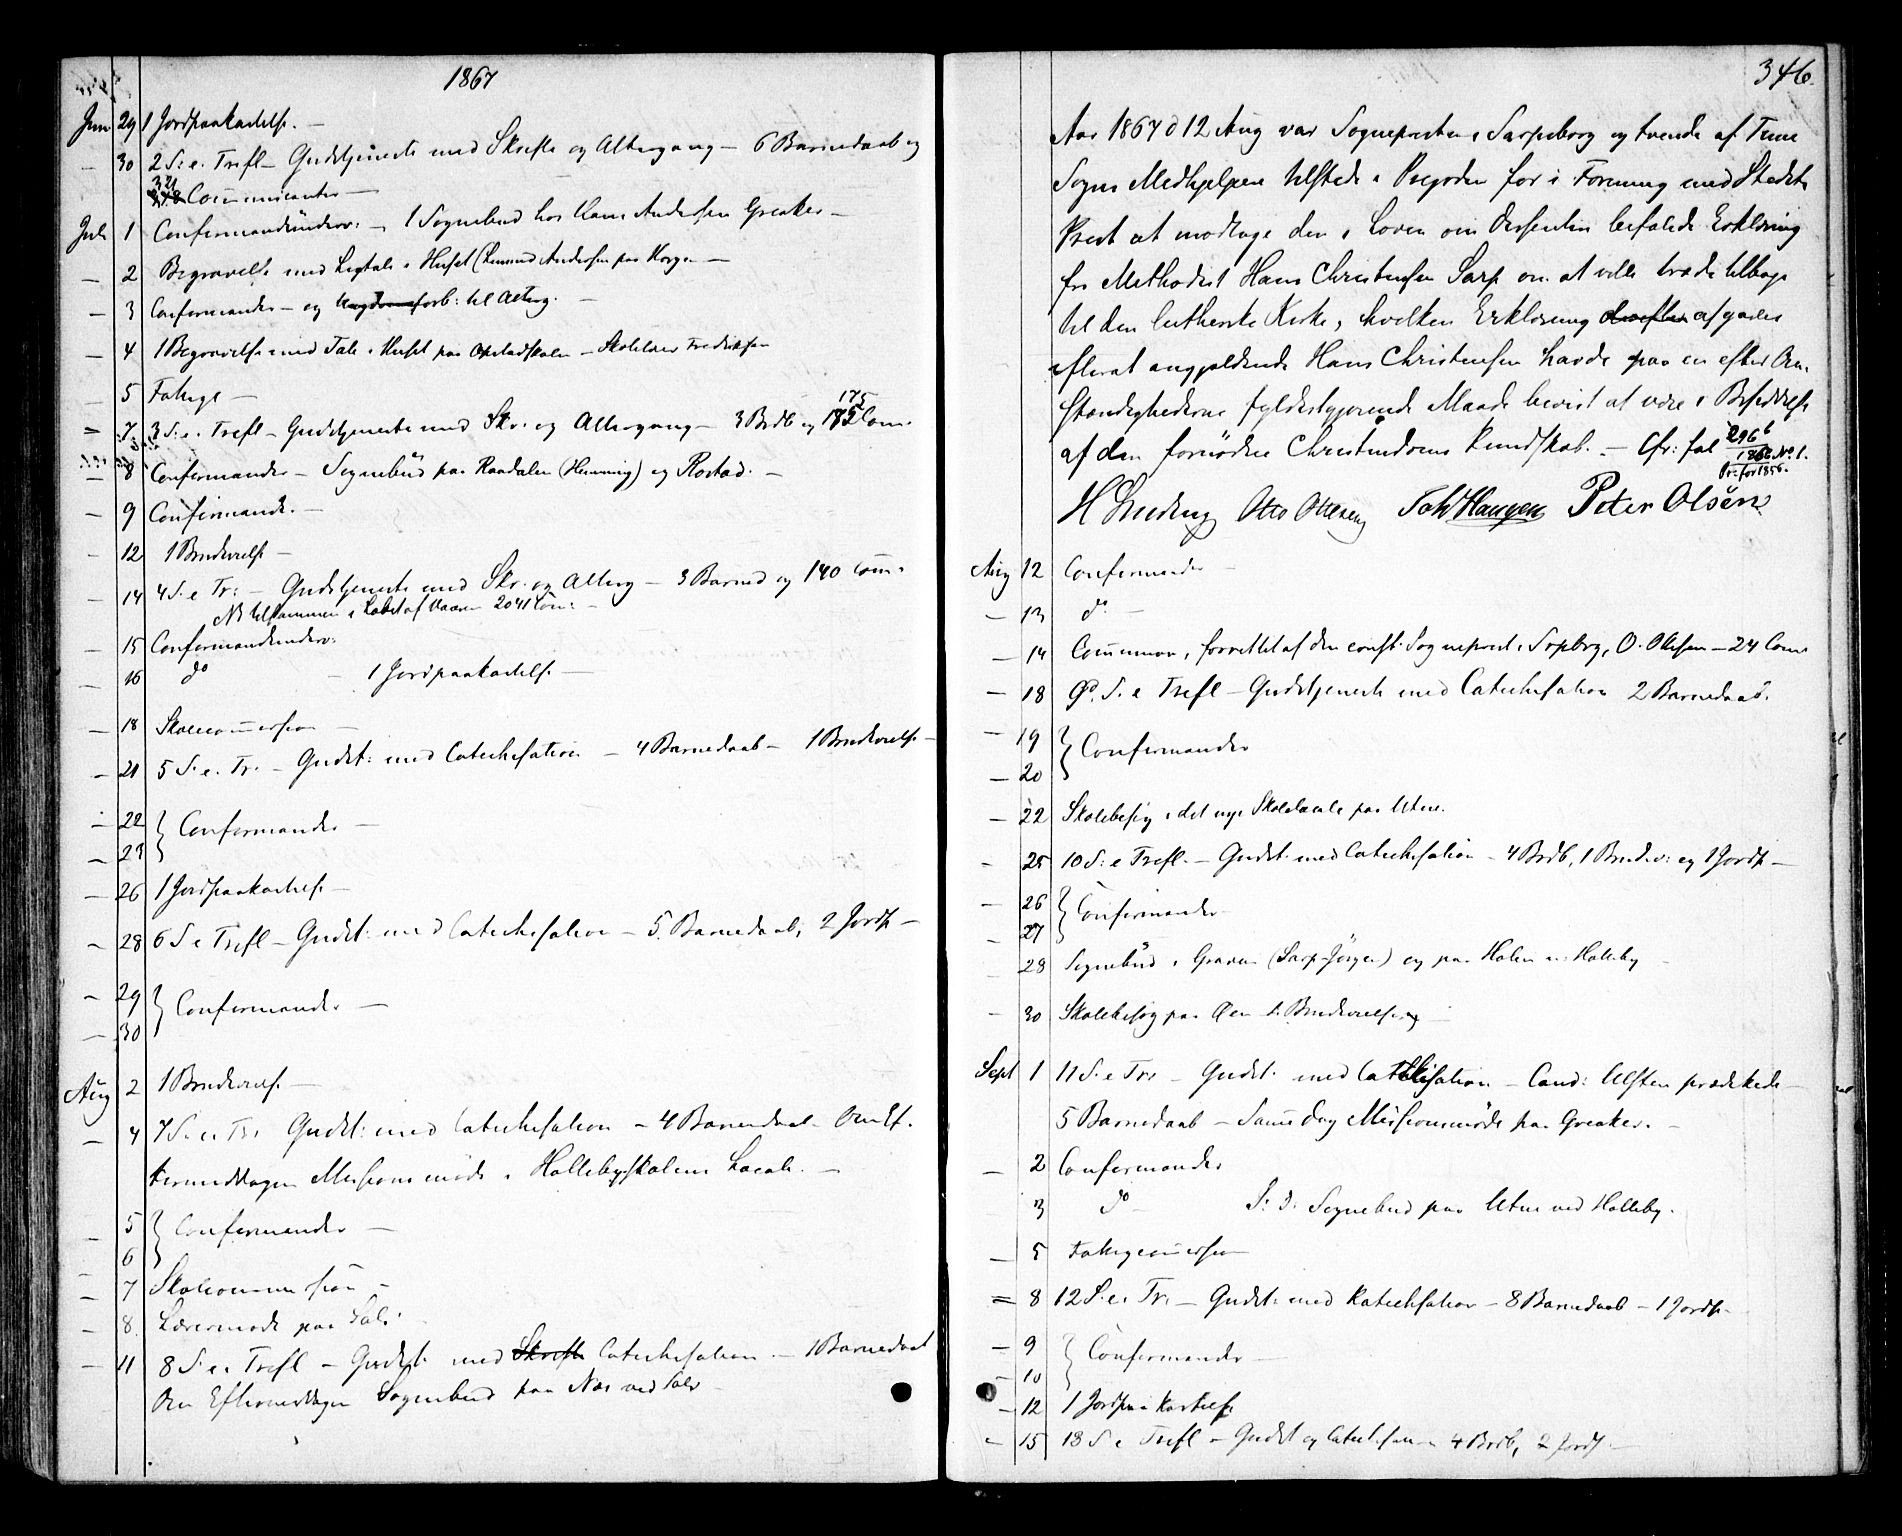 1867
Juni 29 1 Jordpaakastelse. —
— 30 2 S. e. Trefl — Gudstjeneste med Skrifte og Altergang — 6 Barnedaab og
321
Communicanter —
Juli 1 Confirmandunderv: — 1 Sognebud hos Hans Andersen Greaker —
— 2 Begravelse med Ligtale i Huset (Andersen paa —
— 3 Confirmander — og forb: til Alterg. —
— 4 1 Begravelse med Tale i Huset paa Opstadskolen — Skolelærer Fredriksen
5 Fattige —
175
= 7 3 S. e. Trefl — Gudstjeneste med Skr. og Altergang — 3 Brdb og 185 Com.
= 8 Confirmander — Sognebud paa Raadalen (Hemming) og Rostad. —
— 9 Confirmand. —
— 12 1 Brudevielse —
— 14 4 S. e Tr: — Gudstjeneste med Skr. og Alterg — 3 Barned og 140 Com.
NB tilsammen i Løbet af Vaaren 2041 Com: —
— 15 Confirmandunderv:
— 16 do — 1 Jordpaakastelse —
— 18 Skolecommission —
— 21 5 S. e. Tr. — Gudst: med Catechisation — 4 Barnedaab — 1 Brudevielse —
— 22 } Confirmander —
— 23
— 26 1 Jordpaakastelse —
— 28 6 S e Trefl — Gudst: med Catechisation — 5 Barnedaab, 2 Jordp —
— 29 } Confirmander —
— 30
Aug 2 1 Brudevielse —
— 4 7 S. e. Tr. Gudst: med Catechisation — 4 Barnedaab — Om Ef-
termiddagen Missionsmøde i Hallebyskolens Locale. —
— 5 } Confirmander —
— 6
— 7 Skolecommission —
— 8 Lærermøde paa
— 11 8 S. e. Trefl — Gudst. med Skrifte Catechisation — 1 Barnedaab
Om Eftermiddagen Sognebud paa Næs ved
346.
Aar 1867 d 12 Aug var Sognepresten i Sarpsborg og tvende af Tune
Sogns Medhjelpere tilstede i Presgården for i Forening med Stedets
Prest at modtage den i Loven om Dissentere befalede Erklæring
fra Methodist Hans Christensen Sarp om at ville træde tilbage
til den lutherske Kirke, hvilken Erklæring derefter afgaves
efterat angjældende Hans Christensen havde paa en efter Om-
stændighederne fyldestgjørende Maade bevist at være i Besiddelse
af den fornødne Christendoms Kundskab. — Cfr: fol 296 b
No. 1.
Pr: for 1856.
Otto Ottesen Peter Olsen
Aug 12 Confirmander —
— 13 do —
— 14 Communion, forrettet af den const. Sogneprest i Srpbrg, O. Olsen — 24 Com
— 18 9 S. e Trefl — Gudstjeneste med Catechisation 2 Barnedaab.
— 19 } Confirmander
— 20
— 22 Skolebesøg i det nye Skolelocale paa Utne.
— 25 10 S: e Trefl. — Gudst. med Catechisation — 4 Brdb, 1 Brudev: og 1 Jordp —
— 26 } Confirmander
— 27
28 Sognebud i Graven (Sarp-Jörgen) og paa Holen v. Halleby
— 30 Skolebesøg paa Øen 1 Brudevielse
Sept 1 11 S. e Tre — Gudst. med Catechisation — Cand: Ulsten prædikede —
5 Barnedaab — Samme Dag Missionsmöde paa Greaker. —
— 2 Confirmander
3 do — S: D: Sognebud paa Utne ved Halleby.
— 5 Fattigcommission
= 8 12 S. e. Tr. — Gudst: med Katechisation — 8 Barnedaab — 1 Jordp.
— 9 } Confirmander —
— 10
— 12 1 Jordpaakastelse
— 15 13 S e Trefl — Gudst og Catechisation 4 Brdb, 2 Jordp —